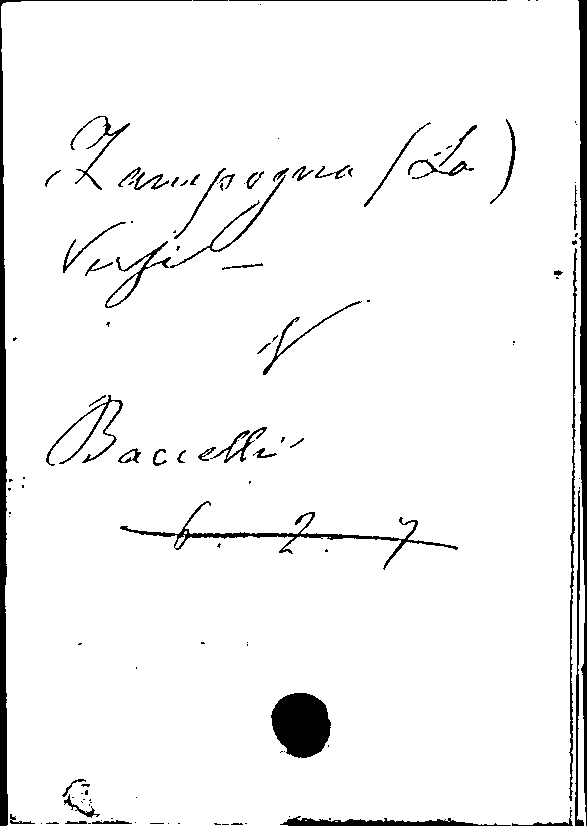 Zampogna (La)
Versi —
V
Baccelli
6. 2. 7